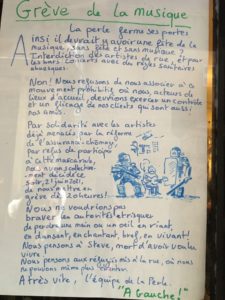 Grève de la musique
La perle ferme ses portes
Ainsi il devrait y avoir une fête de la
musique, sans fête et sans musique ?
Interdiction des artistes de rue, et pour
les bars: concerts avec des règles sanitaires
abusives.
Non! Nous refusons de nous associer à ce
mouvement prohibitif où nous, acteurs de
lieux d'accueil, devrions exercer un contrôle
et un flicage de nos clients qui sont aussi
nos amis.
Par solidarité avec les artistes
déjà menacés par la réforme
de l'assurance-chômage,
par refus de participer
à cette mascarade,
nous avons collective-
ment décidé ce
soir, 21 juin 2021,
de nous mettre en
grève dès 20 heures!
Nous ne voudrions pas
braver les autorités et risquer
de perdre une main ou un oeil en riant,
en dansant, en chantant, bref, en vivant!
Nous pensons à Steve, mort d'avoir voulu
vivre.
Nous pensons aux réfugiés mis à la rue, où nous
ne pouvons même plus
A très vite, l'équipe de la Perle.
"A Gauche!"